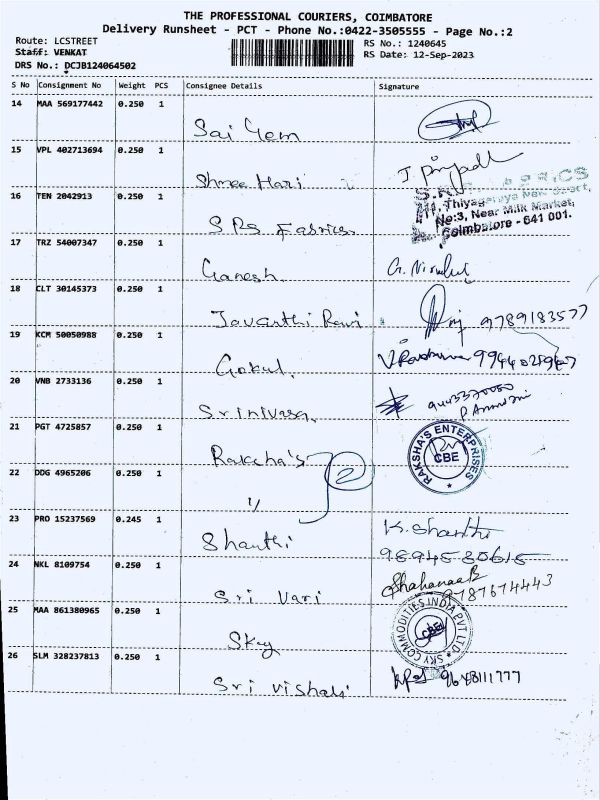 THE PROFESSIONAL COURIERS, COIMBATORE
Delivery Runsheet - PCT - Phone No.:0422-3505555 - Page No.:2
Route: LCSTREET
RS No.: 1240645
Staff: VENKAT
RS Date: 12-Sep-2023
DRS No.: DCJB124064502
S No Consignment No Weight PCS Consignee Details Signature
14 MAA 569177442 0.250 1
Sai Gem
15 VPL 402713694 0.250 1
Shree Hari
16 TEN 2042913 0.250 1
S.R.S Fabrics
No:3, Near Milk Market,
Coimbatore - 641 001.
17 TRZ 54007347 0.250 1
Ganesh
18 CLT 30145373 0.250 1
Jayanthi Ravi 9789183577
19 KCM 50050988 0.250 1
Gokul.
20 VNB 2733136 0.250 1
Srinivasa
21 PGT 4725857 0.250 1
Rakcha's
RAKSHA'S ENTERPRISES
CBE
22 DDG 4965206 0.250 1
23 PRO 15237569 0.245 1
Shanthi K. Shanthi
24 NKL 8109754 0.250 1
Sri Vari Shahanaa B
9787674443
25 MAA 861380965 0.250 1
Sky
SKY COMMODITIES INDIA PVT LTD.
CBE
26 SLM 328237813 0.250 1
Sri Vishali